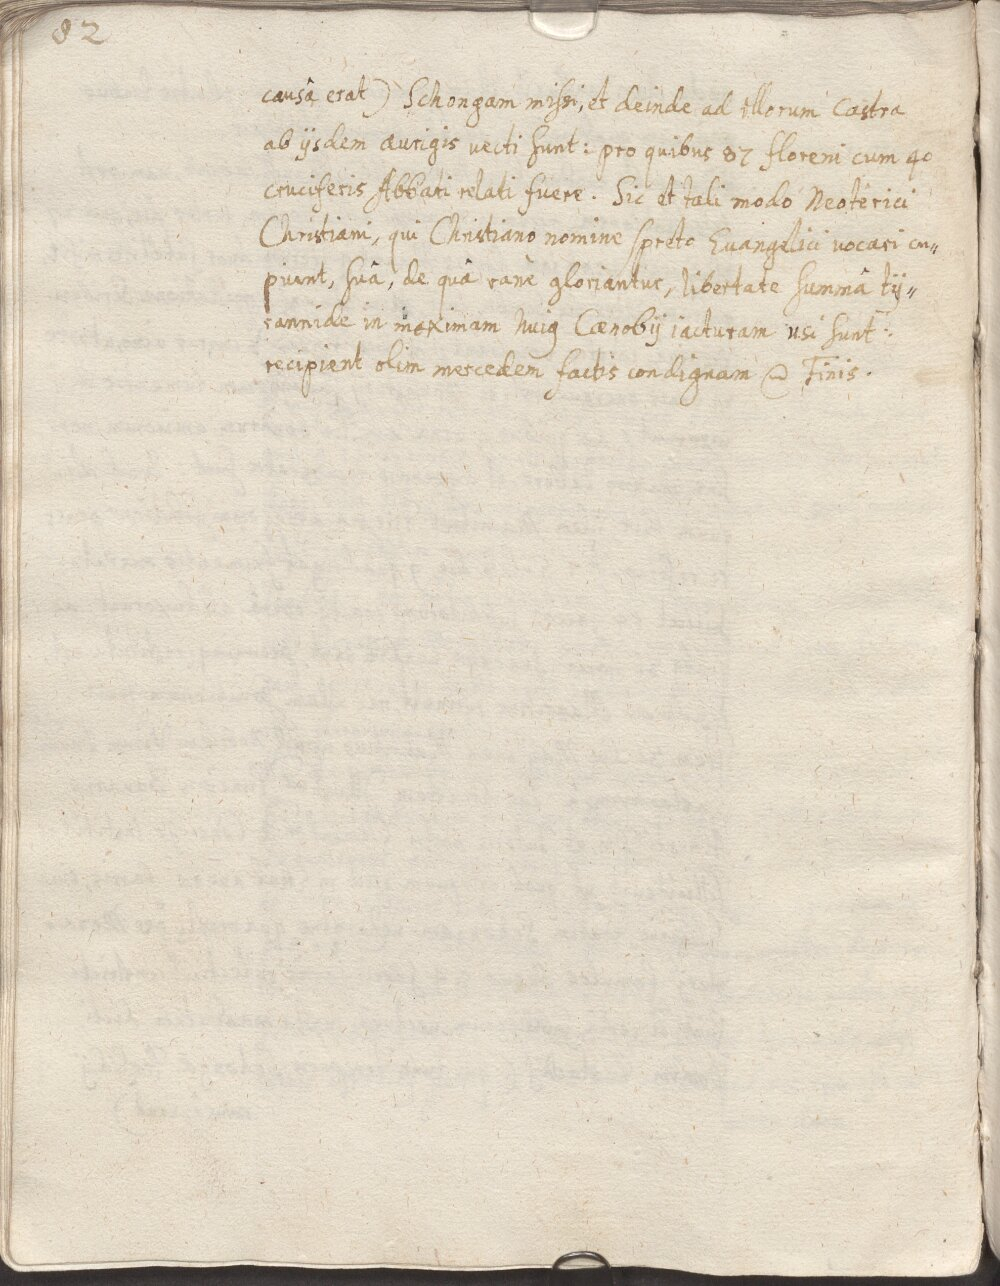 82
causâ erat) Schongam missi, et deinde ad illorum Castra
ab ijsdem aurigis vecti sunt: pro quibus 87 floreni cum 40
cruciferis Abbati relati fuere. Sic et tali modo Neoterici
Christiani, qui Christiano nomine spreto Evangelici vocari cu„
piunt, suâ, de quâ vane gloriantur, libertate summâ ty„
rannide in maximam huig Cœnobij iacturam usi sunt:
recipient olim mercedem factis condignam Finis.